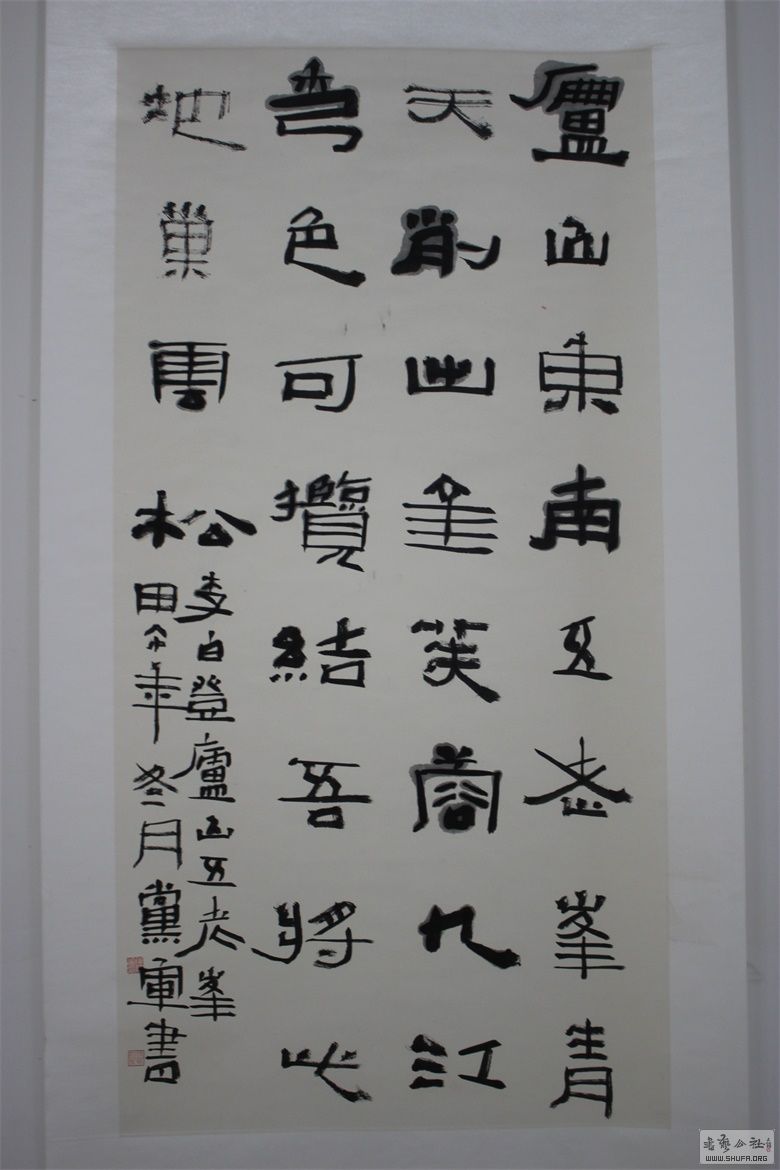 廬山東南五老峯青
天削出金芙蓉九江
秀色可攬結吾將此
地巢雲松
李白登廬山五老峯
甲午年冬月黨軍書
书艺公社
WWW.SHUFA.ORG